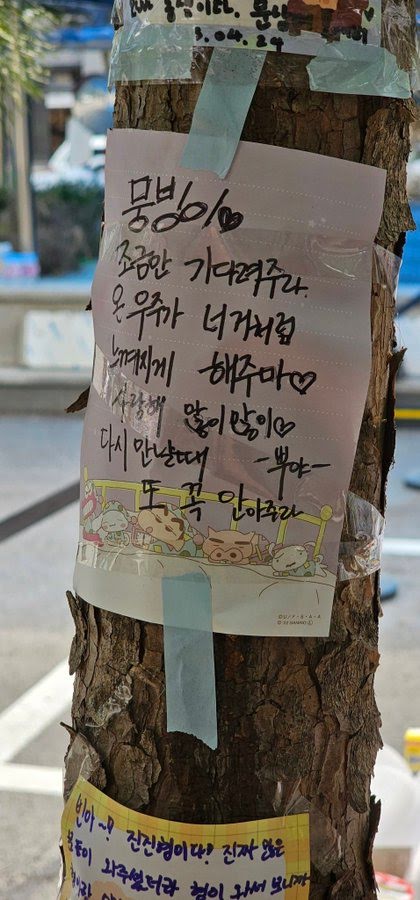 3.04.29
뭉빙이♥
조금만 기다려주라.
온 우주가 너거처럼
느껴지게 해주마♡
사랑해 많이많이♡
다시 만날때 -뿌야-
또 꼭 안아주라
© '22 SANRIO
빈아~! 진진형이다! 진짜 많은
와주셨더라 형이 와서 보니까